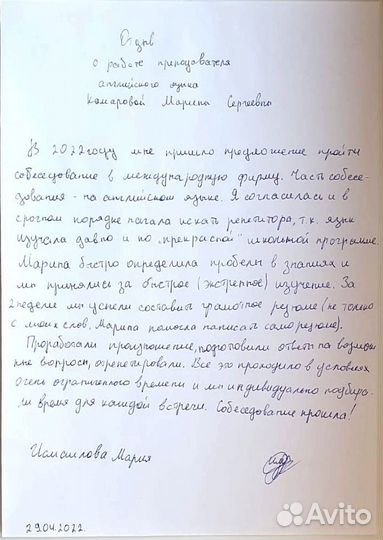 Отзыв
о работе преподавателя
английского языка
Комаровой Марины Сергеевны
В 2022 году мне пришло предложение пройти
собеседование в международную фирму. Часть собесе-
дования - на английском языке. Я согласилась и в
срочном порядке начала искать репетитора, т.к. язык
изучала давно и по "прекрасной" школьной программе.
Марина быстро определила пробелы в знаниях и
мы принялись за быстрое (экстренное) изучение. За
2 недели мы успели составить грамотное резюме (не только
с моих слов, Марина помогла написать само резюме).
Проработали произношение, подготовили ответы на возмож
ные вопросы, отрепетировали. Все это проходило в условиях
очень ограниченного времени и мы индивидуально подбира-
ли время для каждой встречи. Собеседование прошла!
Исмаилова Мария
29.04.2022.
Avito